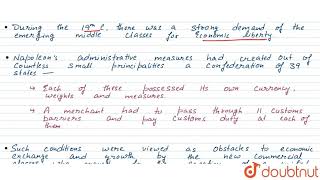 • During the 19th C. there was a strong demand of the
emerging middle classes for economic liberty
• Napoleon's administrative measures had created out of
countless small principalities a confederation of 39
states —
↳ Each of these possessed its own currency,
weights and measures.
↳ A merchant had to pass through 11 customs
barriers and pay customs duty at each of
them
• Such conditions were viewed as obstacles to economic
exchange and growth by the new commercial
doubtnut